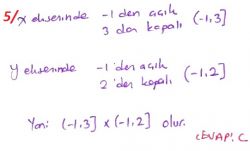 5/ x ekseninde -1 den açık (-1,3]
3 den kapalı
y ekseninde -1 den açık (-1,2]
2 den kapalı
Yani (-1,3] x (-1,2] olur.
CEVAP: C